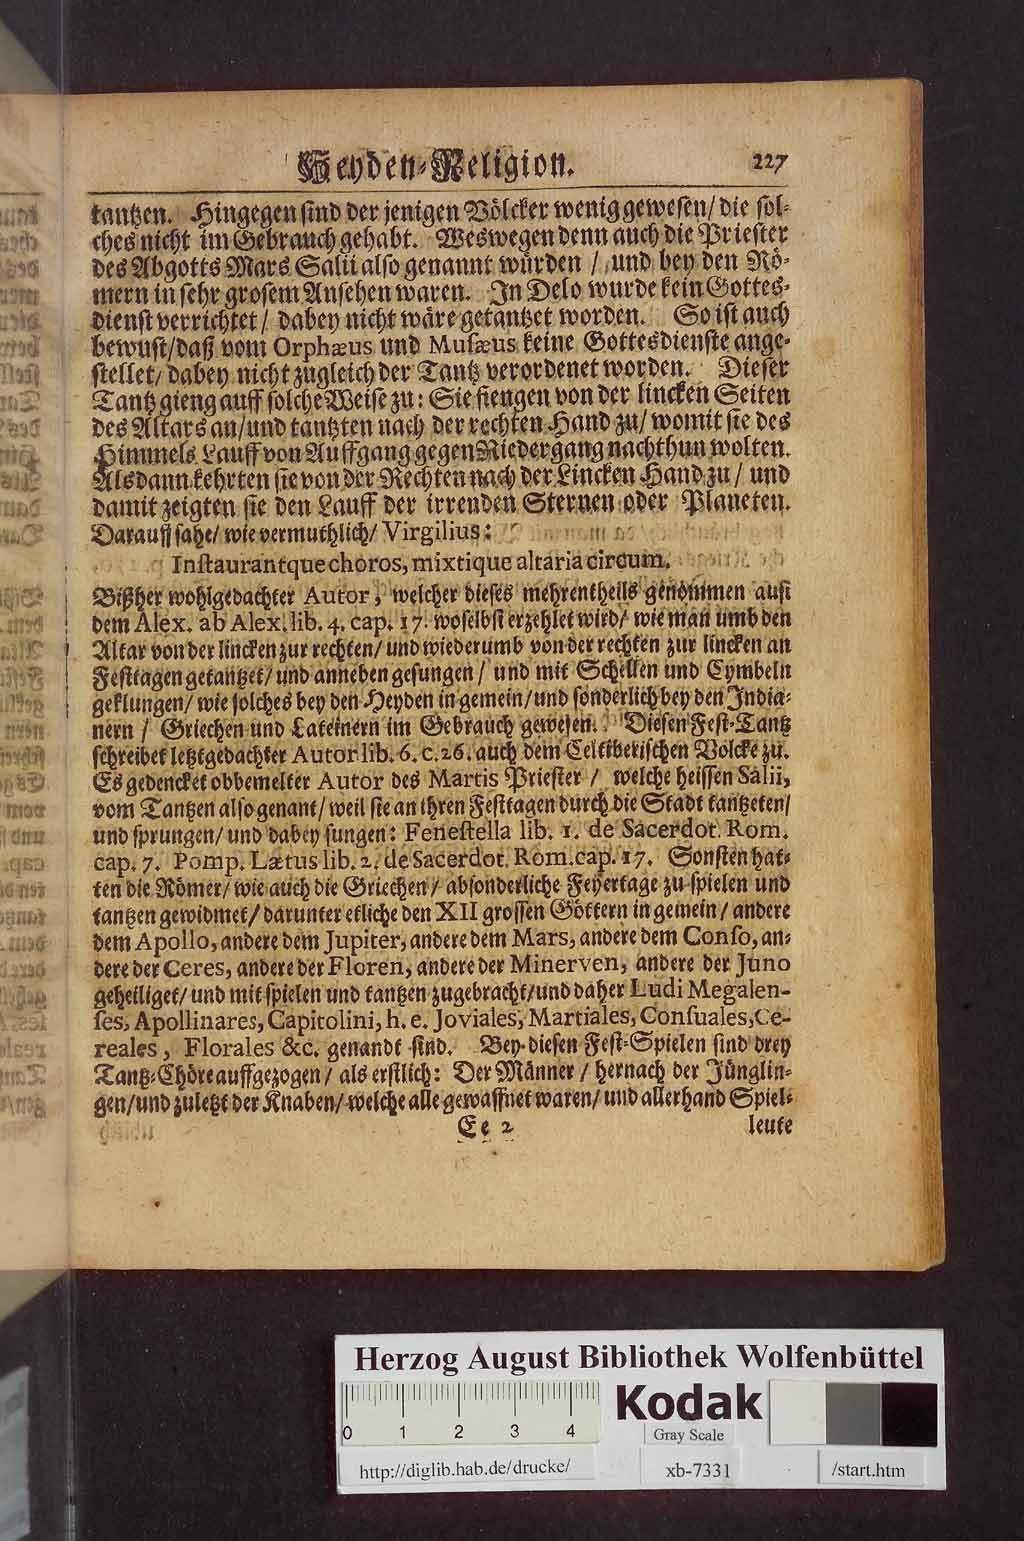 Heyden-Religion. 227
tantzen. Hingegen sind der jenigen Völcker wenig gewesen/ die sol-
ches nicht im Gebrauch gehabt. Weswegen denn auch die Priester
des Abgotts Mars Salii also genannt würden / und bey den Rö-
mern in sehr grosem Ansehen waren. In Delo wurde kein Gottes-
dienst verrichtet/ dabey nicht wäre getantzet worden. So ist auch
bewust/ daß vom Orphæus und Musæus keine Gottesdienste ange-
stellet/ dabey nicht zugleich der Tantz verordenet worden. Dieser
Tantz gieng auff solche Weise zu: Sie fiengen von der lincken Seiten
des Altars an/ und tantzten nach der rechten Hand zu/ womit sie des
Himmels Lauff von Auffgang gegen Niedergang nachthun wolten.
Alsdann kehrten sie von der Rechten nach der Lincken Hand zu / und
damit zeigten sie den Lauff der irrenden Sternen oder Planeten.
Darauff sahe/ wie vermuthlich/ Virgilius:
Instaurantque choros, mixtique altaria circum.
Bißher wohlgedachter Autor, welcher dieses mehrentheils genommen auß
dem Alex. ab Alex. lib. 4. cap. 17. woselbst erzehlet wird/ wie man umb den
Altar von der lincken zur rechten/ und wiederumb von der rechten zur lincken an
Festtagen getantzet/ und anneben gesungen / und mit Schellen und Cymbeln
geklungen/ wie solches bey den Heyden in gemein/ und sonderlich bey den India-
nern / Griechen und Lateinern im Gebrauch gewesen. Diesen Fest-Tantz
schreibet letztgedachter Autor lib. 6. c. 26. auch dem Celtiberischen Volcke zu.
Es gedencket obbemelter Autor des Martis Priester / welche heissen Salii,
vom Tantzen also genant/ weil sie an ihren Festtagen durch die Stadt tantzeten/
und sprungen/ und dabey sungen: Fenestella lib. 1. de Sacerdot. Rom.
cap. 7. Pomp. Lætus lib. 2. de Sacerdot. Rom. cap. 17. Sonsten hat-
ten die Römer/ wie auch die Griechen/ absonderliche Feyertage zu spielen und
tantzen gewidmet/ darunter etliche den XII grossen Göttern in gemein/ andere
dem Apollo, andere dem Jupiter, andere dem Mars, andere dem Conso, an-
dere der Ceres, andere der Floren, andere der Minerven, andere der Juno
geheiliget/ und mit spielen und tantzen zugebracht/ und daher Ludi Megalen-
ses, Apollinares, Capitolini, h. e. Joviales, Martiales, Consuales, Ce-
reales, Florales &c. genandt sind. Bey diesen Fest-Spielen sind drey
Tantz-Chöre auffgezogen/ als erstlich: Der Männer / hernach der Jünglin-
gen/ und zuletzt der Knaben/ welche alle gewaffnet waren/ und allerhand Spiel-
Ee 2 leute
Herzog August Bibliothek Wolfenbüttel
0 1 2 3 4
Kodak
Gray Scale
http://diglib.hab.de/drucke/ xb-7331 /start.htm